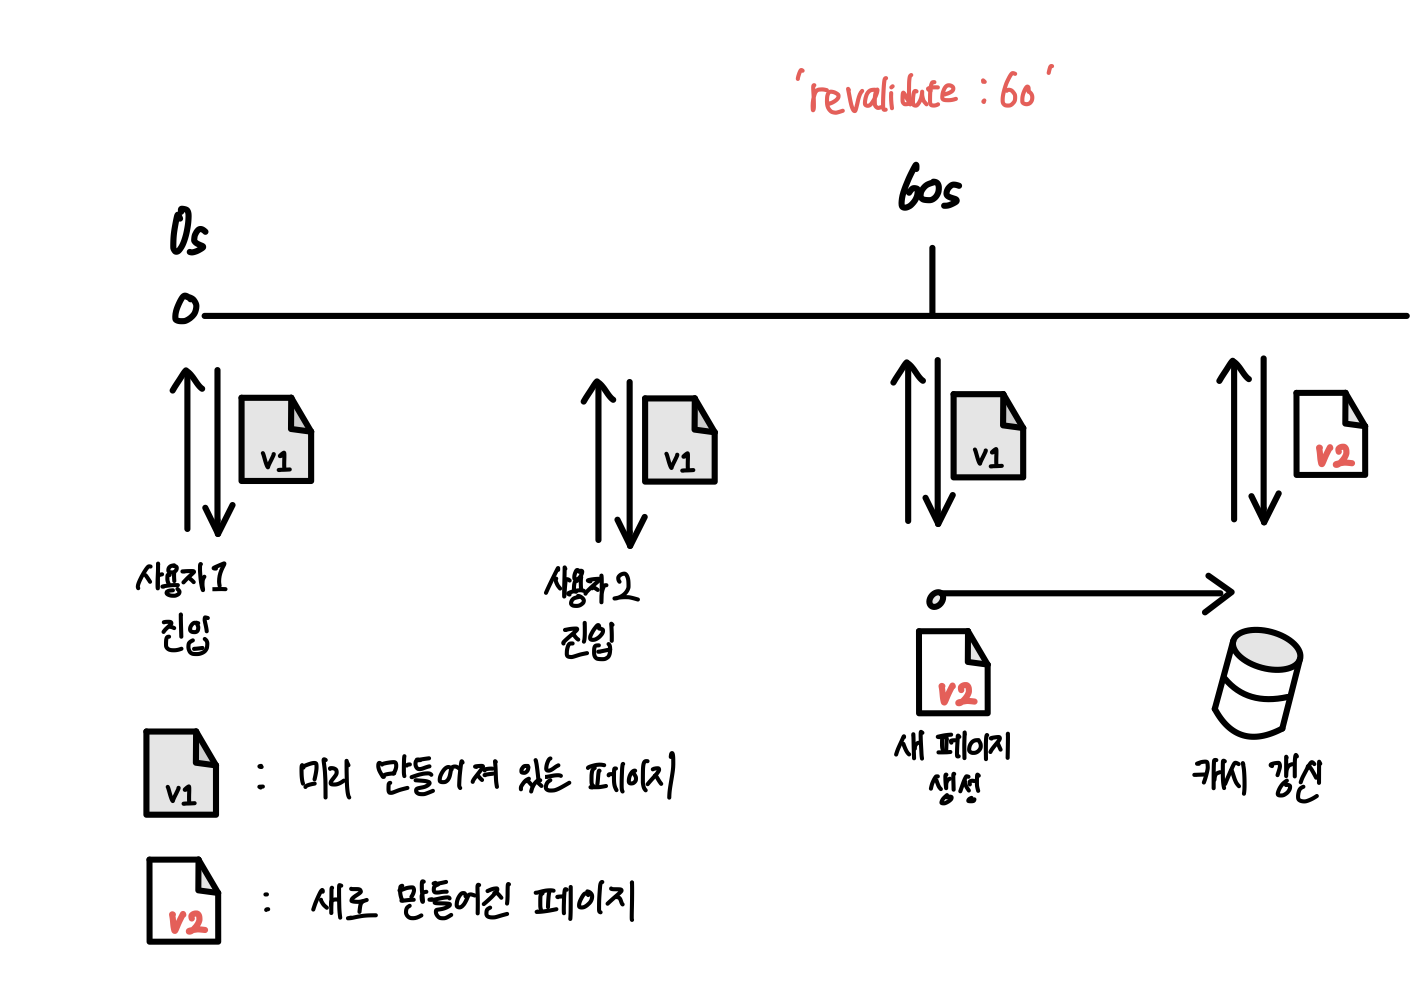 'revalidate : 60'
60s
0s
0
V1
V1
V1
V2
사용자 1
진입
사용자 2
진입
V2
새 페이지
생성
캐시 갱신
V1 : 미리 만들어져 있는 페이지
V2 : 새로 만들어진 페이지